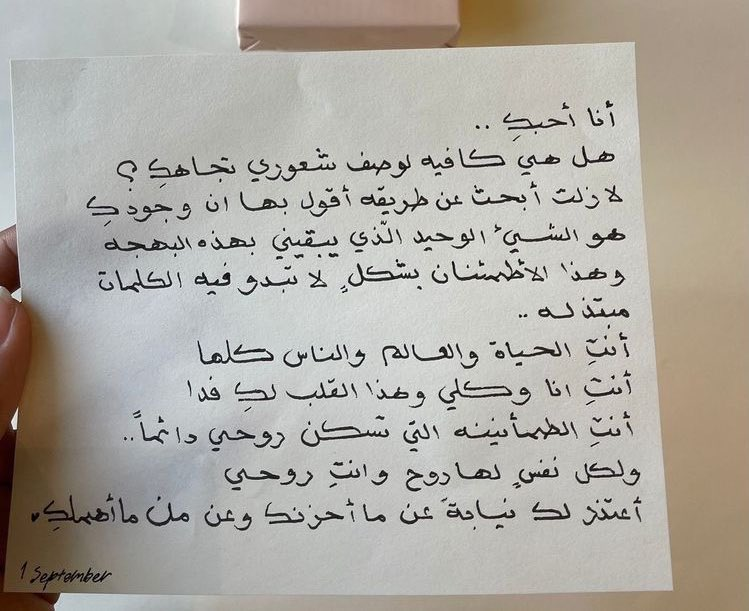 أنا أحبكِ ..
هل هي كافيه لوصف شعوري تجاهكِ ؟
لازلت أبحث عن طريقه أقول بها ان وجودكِ
هو الشيئ الوحيد الّذي يبقيني بهذه البهجه
وهذا الأطمئنان بشكلٍ لا تبدو فيه الكلمات
مبتذله ..
أنتِ الحياة والعالم والناس كلها
أنتِ انا وكلي وهذا القلب لكِ فدا
أنتِ الطمأنينه التي تسكن روحي دائماً ..
ولكل نفسٍ لها روح وانتِ روحي
أعتذر لك نيابةً عن ما أحزنك وعن من ما أهملكِ
1 September